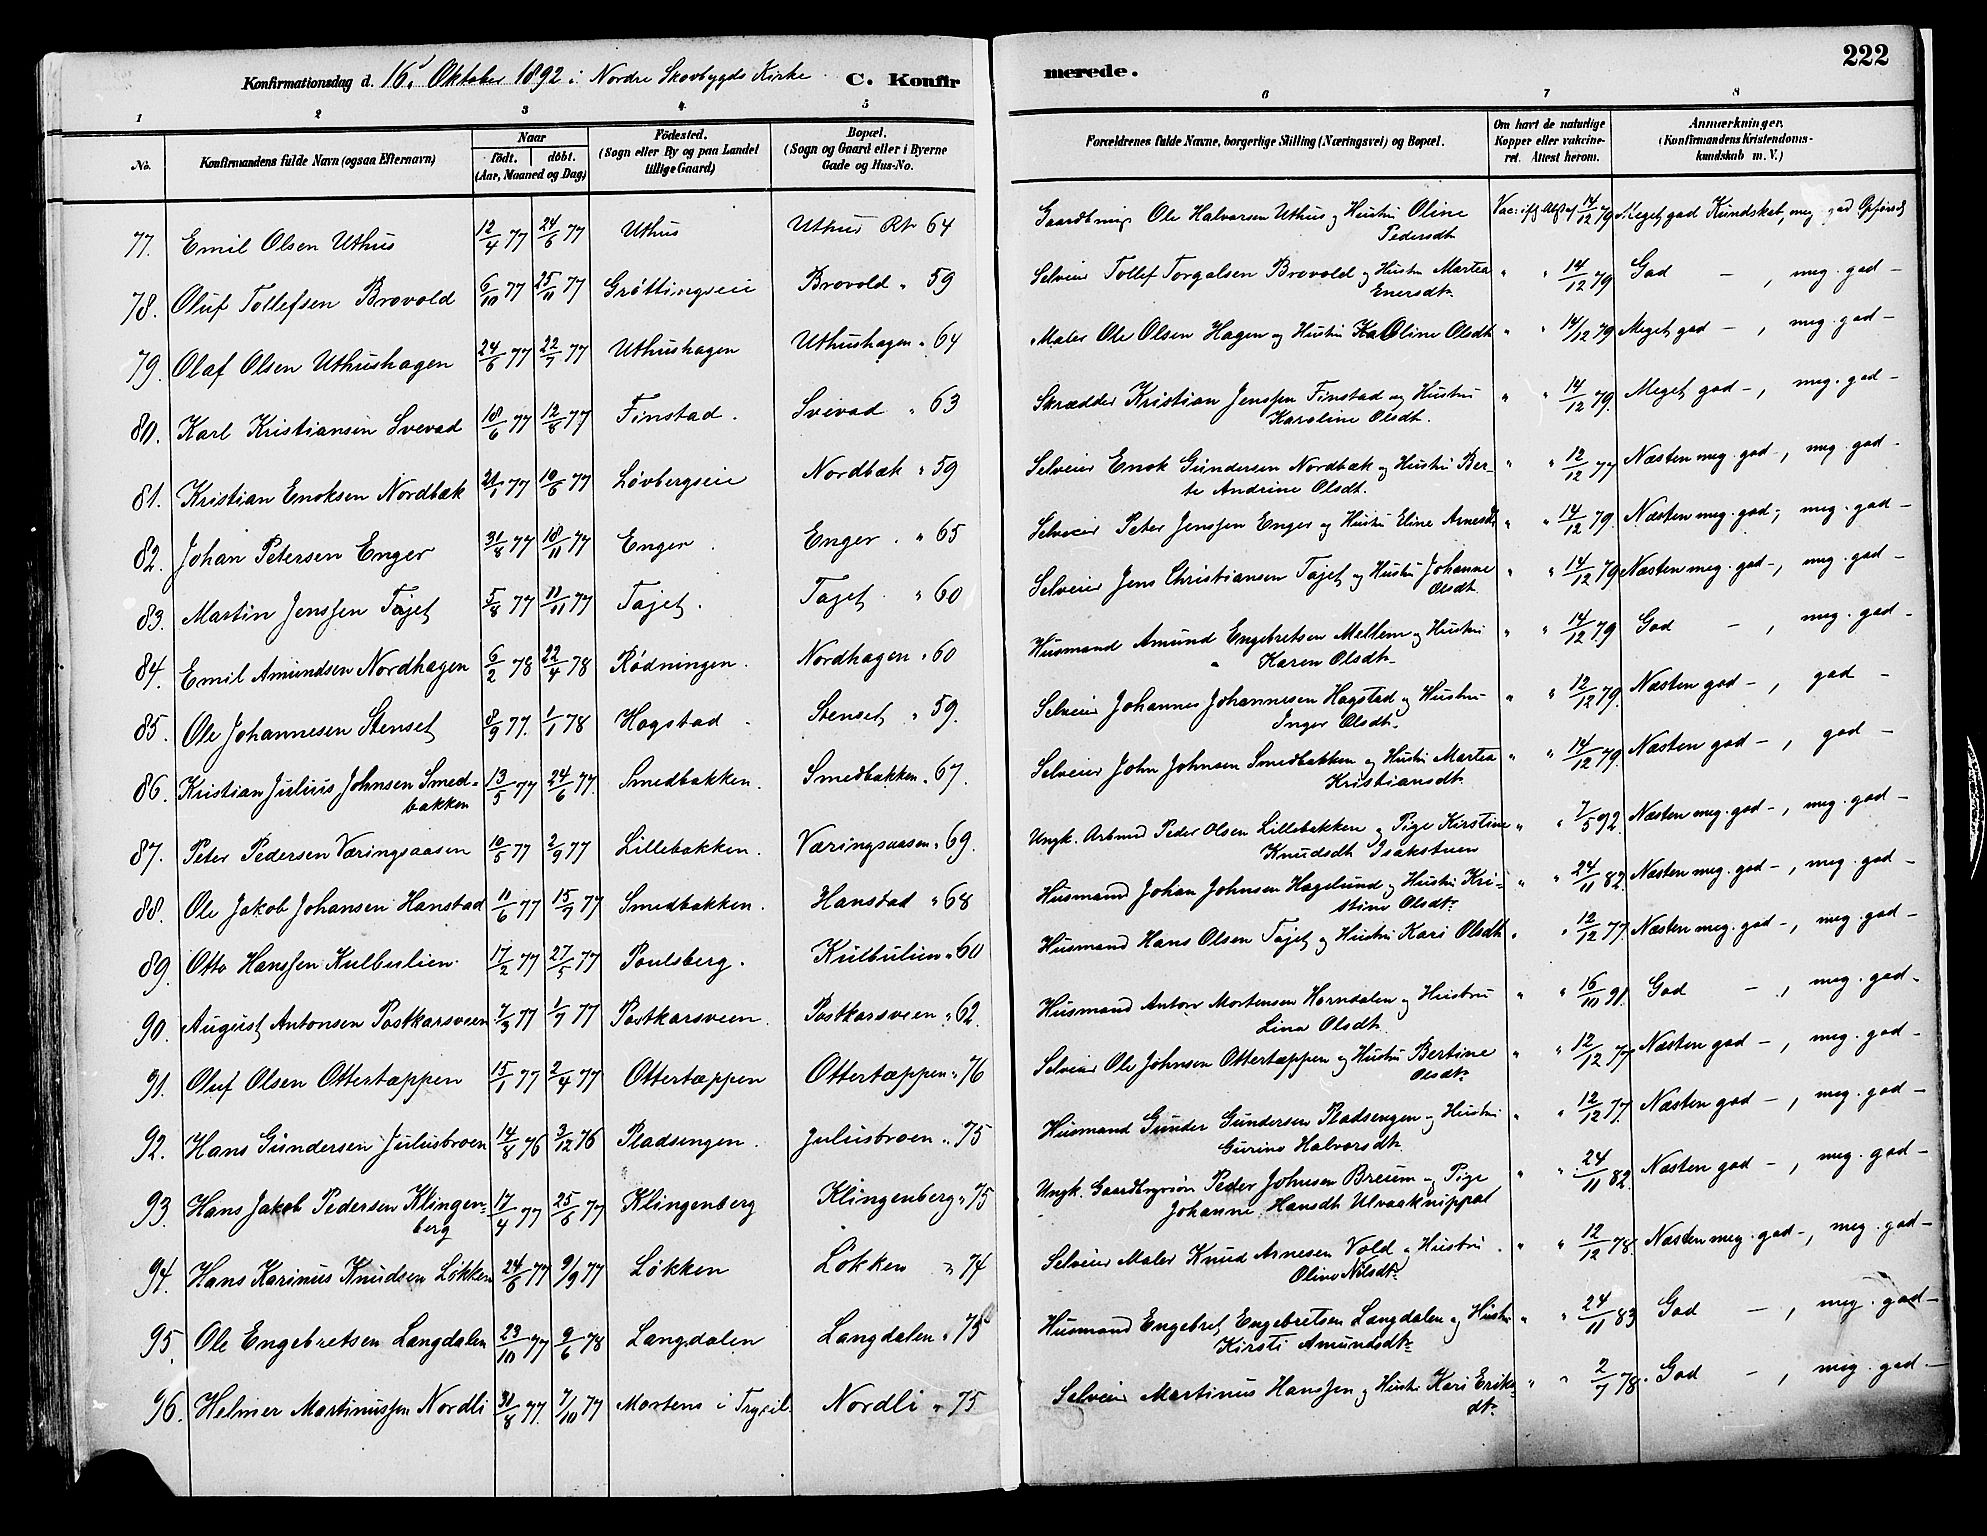 222
Konfirmationsdag d. 16. Oktober 1892 i Nordre Skovbygds Kirke C. Konfirmerede.
1 2 3 4 5 6 7 8
No. Konfirmandens fulde Navn (ogsaa Efternavn) Naar födt. döbt. (Aar, Maaned og Dag) Födested. (Sogn eller By og paa Landet tillige Gaard) Bopæl. (Sogn og Gaard eller i Byerne Gade og Hus-No. Forældrenes fulde Navne, borgerlige Stilling (Næringsvei) og Bopæl. Om havt de naturlige Kopper eller vakcineret. Attest herom. Anmærkninger. (Konfirmandens Kristendomskundskab m. V.)
77. Emil Olsen Uthus 12/4 77 24/6 77 Uthus Uthus Rt 64 Ole Halvorsen Uthus og Hustru Oline
Pedersdt. 14/12 79 Meget god Kundskab, meg. god Opførsel
78. Oluf Tollefsen Brovold 6/10 77 25/11 77 Gröttingseie Brovold " 59 Selveier Tollef Torgalsen Brovold og Hustru Martea
Enersdt. " " 14/12 79 God — , meg. god —
79. Olaf Olsen Uthushagen 24/6 77 22/7 77 Uthushagen Uthushagen " 64 Maler Ole Olsen Hagen og Hustru Karoline Olsdt " " 14/12 79 Meget god — , meg. god —
80. Karl Kristiansen Svevad 18/6 77 12/8 77 Finstad. Svivad " 63 Skrædder Kristian Jenssen Finstad og Hustru
Karoline Olsdt. " " 14/12 79. Meget god —, meg. god —
81. Kristian Enoksen Nordbæk 21/1 77 10/6 77 Lövbergseie Nordbæk " 59 Selveier Enok Gundersen Nordbæk og Hustru Ber-
te Andrine Olsdt. " " 12/12 77 Næsten meg. god —, meg. god —
82. Johan Petersen Enger 31/8 77 18/11 77 Enger. Enger. " 65 Selveier Peter Jenssen Enger og Hustru Eline Arnesdt " " 14/12 79. Næsten meg. god —, meg. god —
83. Martin Jenssen Tajet 5/8 77 11/11 77 Tajet. Tajet. " 60 Selveier Jens Christiansen Tajet og Hustru Johanne
Olsdt. " " 14/12 79 Næsten meg. god —, meg. god —
84. Emil Amundsen Nordhagen 6/2 78 22/4 78 Rødningen. Nordhagen " 60 Husmand Amund Engebretsen Mellem og Hustru
Karen Olsdt. " " 14/12 79 God — , meg. god —
85. Ole Johannesen Stenset 8/9 77. 1/1 78 Hagstad. Stenset " 59. Selveier Johannes Johannesen Hagstad og Hustru
Inger Olsdt. " " 12/12 79. Næsten god — , god —
86. Kristian Julius Johnsen Smed-
bakken 13/5 77 24/6 77. Smedbakken. Smedbakken " 67. Selveier John Johnsen Smedbakken og Hustru Martea
Kristiansdt. " " 14/12 79. Næsten god — , god —
87. Peter Pedersen Væringsaasen 10/5 77 2/9 77 Lillebakken. Væringsaasen " 69. Ungk. Arbmd Peder Olsen Lillebakken og Pige Kirstine
Knudsdt. Isakstuen " " 7/5 92. Næsten meg. god —, meg. god —
88. Ole Jakob Johansen Hanstad 11/6 77 15/7 77 Smedbakken. Hanstad " 68 Husmand Johan Johnsen Hagelund og Hustru Kri-
stine Olsdt. " " 24/11 82. Næsten meg. god —, meg. god —
89. Otto Hanssen Kulbulien. 17/2 77 27/5 77 Poulsberg. Kulbulien " 60 Husmand Hans Olsen Tajet og Hustru Kari Olsdt. " " 12/12 77. Næsten meg. god —, meg. god —
90. August Antonsen Postkarsveen 7/3 77 1/7 77 Postkarsveen. Postkarsveen " 62. Husmand Anton Mortensen Horndalen og Hustru
Lina Olsdt. " " 16/10 91. God — , meg. god —
91. Oluf Olsen Ottertæppen 15/1 77 2/4 77 Ottertæppen Ottertæppen " 76 Selveier Ole Johnsen Ottertæppen og Hustru Bertine
Olsdt. " " 12/12 77. Næsten god — , meg. god —
92. Hans Gundersen Julusbroen 14/8 76 3/12 76 Pladsengen. Julusbroen " 75 Husmand Gunder Gundersen Pladsengen og Hustru
Gurine Halvorsdt. " " 12/12 77. Næsten god — , meg. god —
93. Hans Jakob Pedersen Klingen-
berg 17/4 77 25/6 77 Klingenberg Klingenberg " 75 Ungk. Peder Johnsen Breum og Pige
Johanne Hansdt. Ulvaaknippat " " 24/11 82. Næsten god — , meg. god —
94. Hans Karinus Knudsen Løkken 24/6 77 9/9 77 Løkken Løkken " 74 Selveier Maler Knud Arnesen Vold og Hustru
Oline Nilsdt. " " 12/12 78. Næsten meg. god —, meg. god —
95. Ole Engebretsen Langdalen 23/10 77 9/6 78 Langdalen Langdalen " 75 Husmand Engebret Engebretsen Langdalen og Hustru
Kirsti Amundsdt. " " 24/11 83 God — , meg. god —
96. Helmer Martinussen Nordli 31/8 77. 7/10 77 Mortens i Trysil Nordli " 75 Selveier Martinus Hanssen og Hustru Kari Eriks-
dt. " " 2/7 78. God — , meg. god —